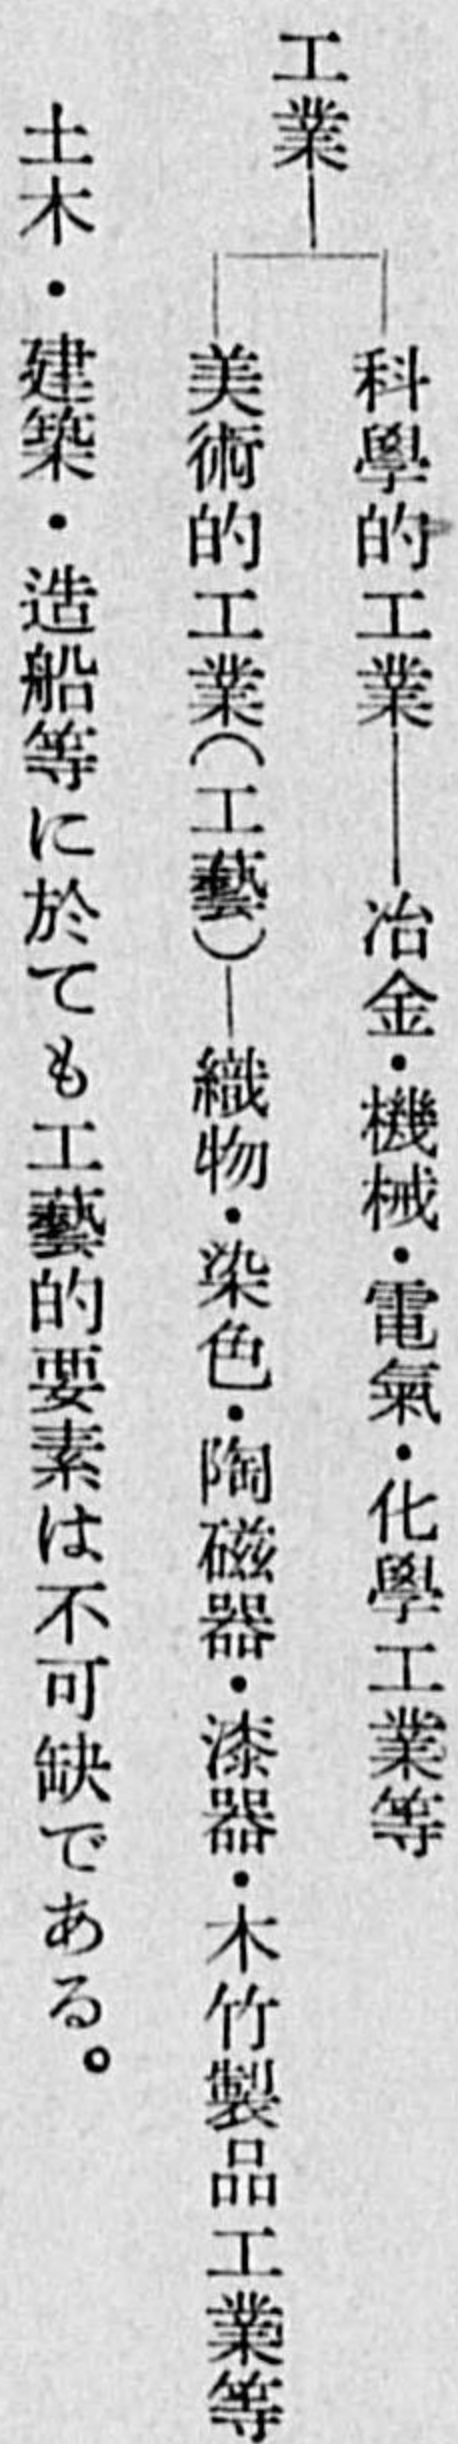 工業
科學的工業――冶金・機械・電氣・化學工業等
美術的工業（工藝）―織物・染色・陶磁器・漆器・木竹製品工業等
土木・建築・造船等に於ても工藝的要素は不可缺である。